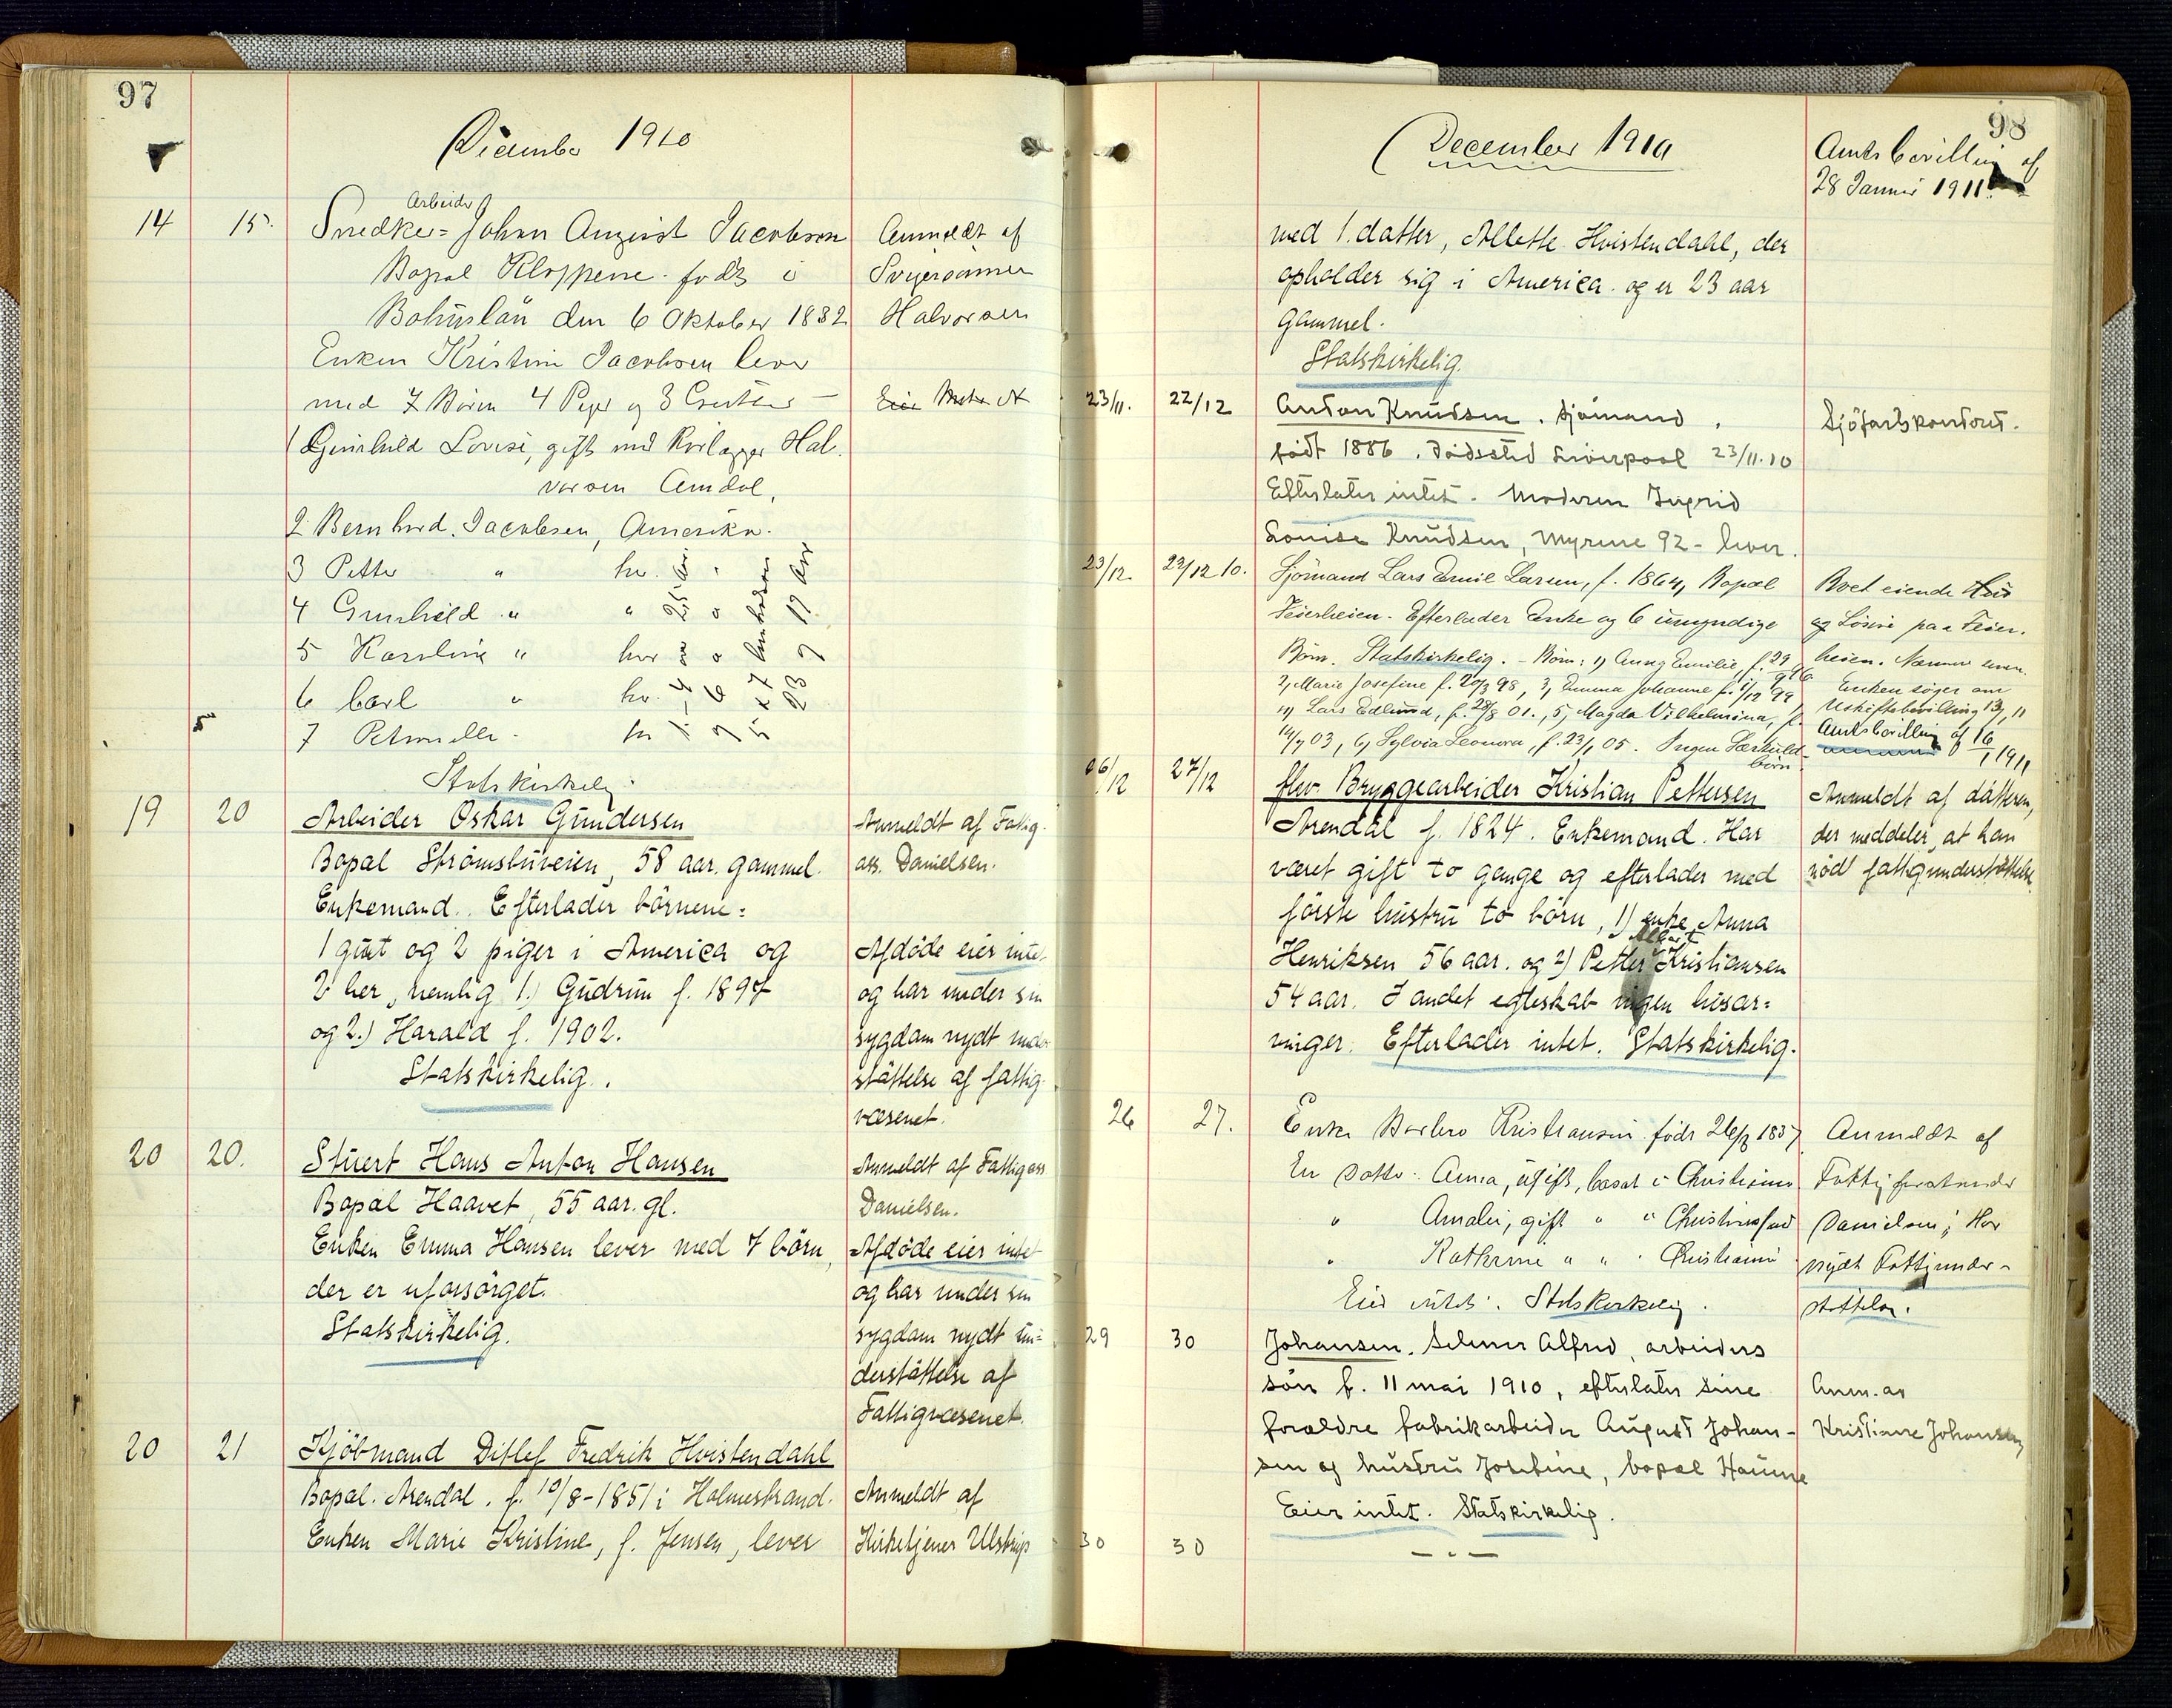 97
December 1910
14 15. Arbeider
Snedker= Johan August Jacobsen
Bopæl Kloppene. født i
Bohuslän den 6 Oktober 1832
Enken Kristine Jacobsen lever
med 7 Børn 4 Piger og 3 Gutter
1 Gunhild Lovise, gift med Hal-
vorsen Arndal,
2 Bernhard. Jacobsen, Amerika.
3 Petter " her
4 Gunhild " "
5 Karoline " her
6 Carl " her
7 Petronelle "
Statskirkelig
Anmeldt af
Svigersønnen
Halvorsen
19 20 Arbeider Oskar Gundersen
Bopæl Strømsbuveien, 58 aar. gammel.
Enkemand. Efterlader børnene:
1 gut og 2 piger i America og
2 her, nemlig 1.) Gudrun f. 1897
og 2.) Harald f. 1902.
Statskirkelig.
Anmeldt af Fattig-
ass. Danielsen.
Afdøde eier intet
og har under sin
sygdom nydt under-
støttelse af fattig-
væsenet.
20 20. Stuert Hans Anton Hansen
Bopæl Haavet, 55 aar. gl.
Enken Emma Hansen lever med 7 børn,
der er uforsørget.
Statskirkelig.
Anmeldt af Fattigass
Danielsen.
Afdøde eier intet
og har under sin
sygdom nydt un=
derstøttelse af
Fattigvæsenet.
20 21 Kjøbmand Ditlef Fredrik Hvistendahl
Bopæl. Arendal. f. 10/8-1851 i Holmestrand.
Enken Marie Kristine, f. Jensen, lever
Anmeldt af
Kirketjener Ulstrup
98
December 1910
Amtsbevilling af
28 Januar 1911
med 1. datter, Allette Hvistendahl, der
opholder sig i America og er 23 aar
gammel.
Statskirkelig.
23/11. 22/12 Anton Knudsen. Sjømand,
født 1886. Dødssted Liverpool 23/11.10
Efterlater intet. Moderen Ingrid
Lovise Knudsen, Myrene 92 - lever.
Sjøfartskontoret.
23/12. 23/12 10. Sjømand Lars Emil Larsen, f. 1864, Bopæl
Feierheien. Efterlader Enke og 6 umyndige
Børn. Statskirkelig. - Børn: 1) Anna Emilie f. 29/9 96
2, Marie Josefine f. 20/3 98, 3, Emma Johanne f. 1/12 99,
4) Lars Edlund, f. 28/8 01., 5, Magda Vilhelmina, f.
14/7 03, 6, Sylvia Leonora, f. 23/1 05. Ingen Særkuld-
børn.
Boet eiende Hus
og Løsøre paa Feier-
heien.
Enken søger om
Uskiftebevilling
Amtsbevilling af 16/1 1911
26/12 27/12 fhv. Bryggearbeider Kristian Pettersen
Arendal f. 1824. Enkemand. Har
været gift to gange og efterlader med
første hustru to børn, 1) enke Anna
Albert
Henriksen 56 aar. og 2) Petter Kristiansen
54 aar. I andet egteskab ingen livsar=
vinger. Efterlader intet. Statskirkelig.
Anmeldt af datteren,
der meddeler, at han
nød fattigunderstøttelse
26 27. Enke Barbro Kristiansen født 26/2 1837
En Datter Anna, ugift, bosat i Christiania
" Amalie, gift " " Christiansand
" Kathrine " " " Christiania
Eier intet. Statskirkelig.
Anmeldt af
Fattigforstander
Danielsen; Har
nydt Fattigunder-
støttelse.
29 30 Johansen. Selmer Alfred, arbeiders
søn f. 11 mai 1910, efterlater sine
forældre fabrikarbeider August Johan-
sen og hustru Josefine, bopæl Haune
Eier intet. Statskirkelig.
Anm. av
Kristiane Johansen,
30 30 - " -